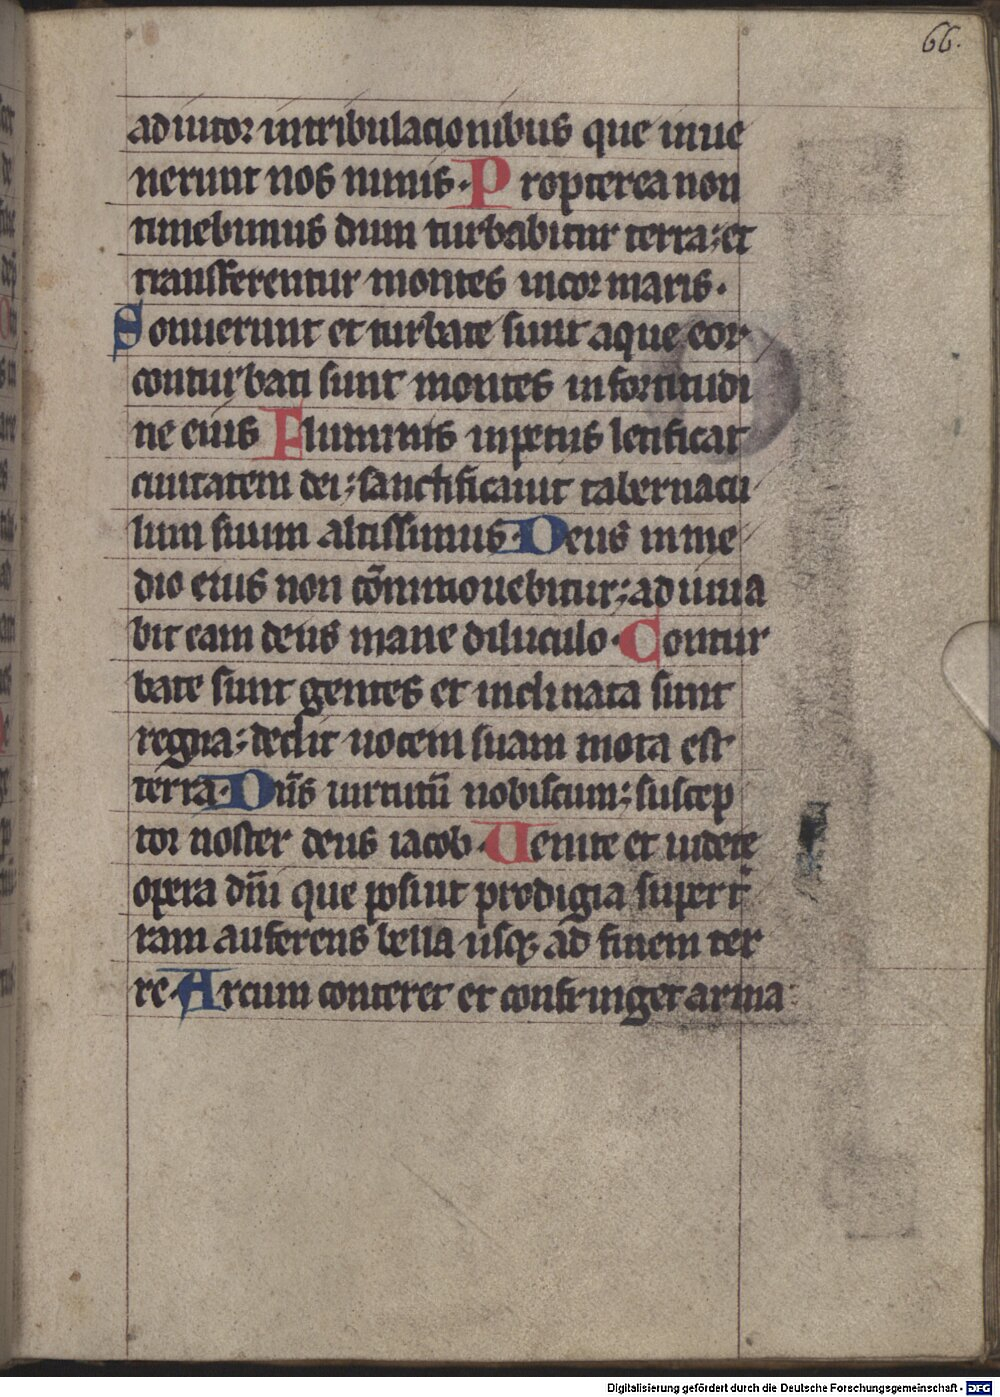 66.
adiutor in tribulacionibus que inue
nerunt nos nimis. Propterea non
timebimus dum turbabitur terra: et
transferentur montes in cor maris.
Sonuerunt et turbate sunt aque eor
conturbati sunt montes in fortitudi
ne eius Fluminis inpetus letificat
ciuitatem dei: sanctificauit tabernacu
lum suum altissimus. Deus in me
dio eius non cōmmouebitur: adiuua
bit eam deus mane diluculo. Contur
bate sunt gentes et inclinata sunt
regna: dedit uocem suam mota est
terra. Dn̄s uirtutū nobiscum: suscep
tor noster deus iacob. Uenite et uidete
opera dn̄i que posuit prodigia super t̄
ram auferens bella usq; ad finem ter
re. Arcum conteret et confringet arma
Digitalisierung gefördert durch die Deutsche Forschungsgemeinschaft - DFG